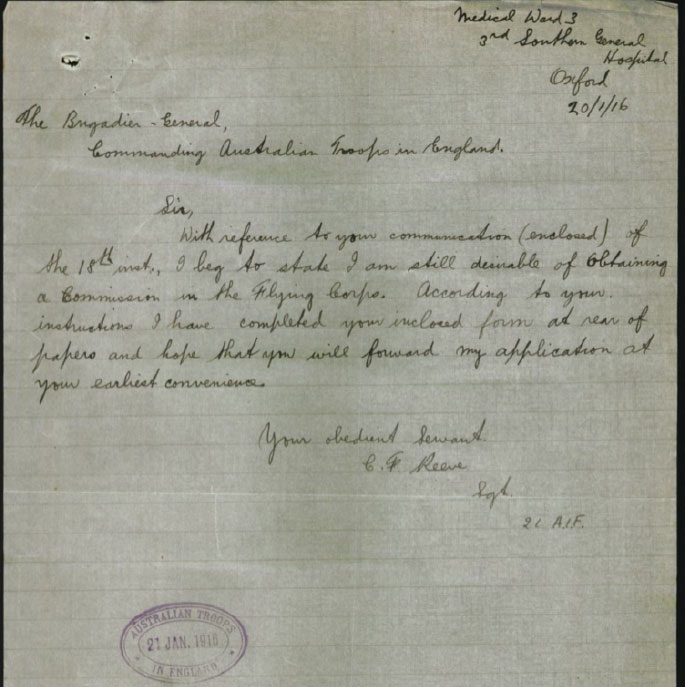 Medical Ward 3
3rd Southern General
Hospital
Oxford
20/1/16
The Brigadier-General,
Commanding Australian Troops in England.
Sir,
With reference to your communication (enclosed) of
the 18th inst., I beg to state I am still desirable of Obtaining
a Commission in the Flying Corps. According to your
instructions I have completed your inclosed form at rear of
papers and hope that you will forward my application at
your earliest convenience
Your obedient Servant.
C. F. Reeve
Sgt.
21 A.I.F.
AUSTRALIAN TROOPS
21 JAN. 1916
IN ENGLAND